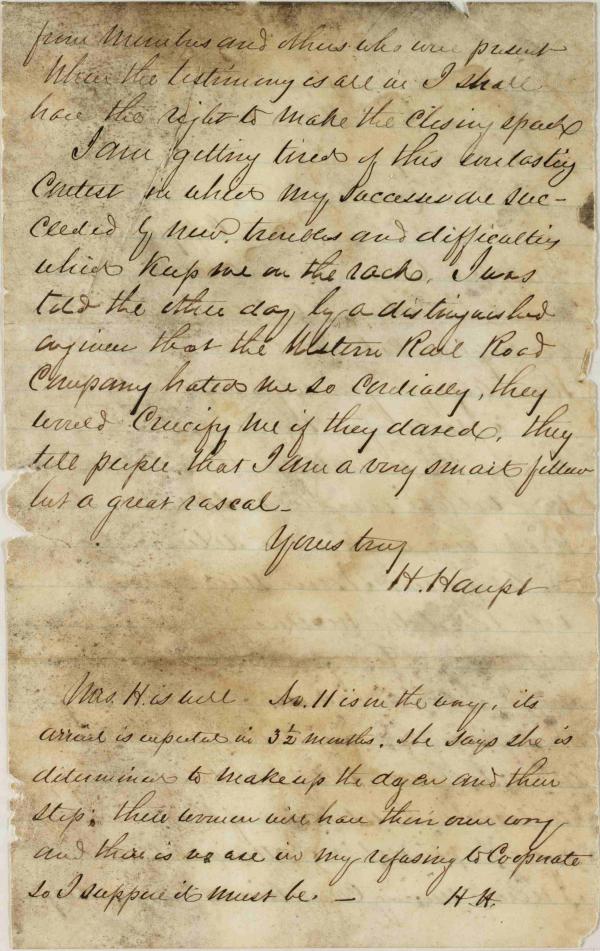 from Members and others who were present
When the testimony is all in I shall
have the right to make the closing speech
I am getting tired of this everlasting
Contest in which my successes are suc-
ceeded by new troubles and difficulties
which keep me on the rack. I was
told the other day by a distinguished
engineer that the Western Rail Road
Company hated me so cordially, they
would Crucify me if they dared. They
tell people that I am a very smart fellow
but a great rascal_
Yours truly
H. Haupt
Mrs. H. is well. No. 11 is on the way, its
arrival is expected in 3½ months. She says she is
determined to make up the dozen and then
stop. These women will have their own way
and there is no use in my refusing to Cooperate
so I suppose it must be. _ H.H.